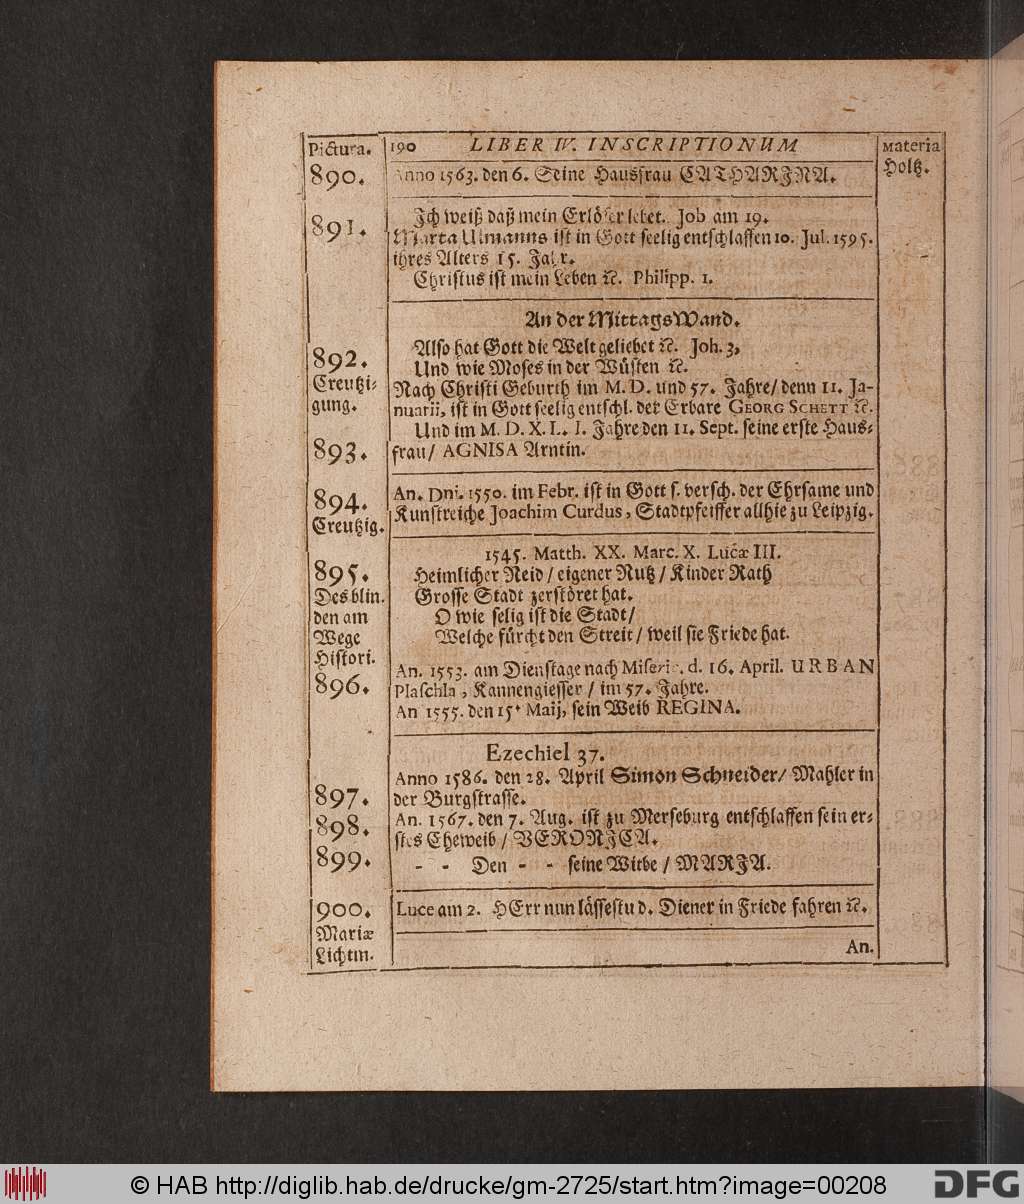 Pictura. 190 LIBER IV. INSCRIPTIONUM Materia
890. Anno 1563. den 6. Seine Hausfrau CATHARINA. Holtz.
891. Ich weiß daß mein Erlöser lebet. Job am 19.
Marta Ulmanns ist in Gott seelig entschlaffen 10. Jul. 1595.
ihres Alters 15. Jahr.
Christus ist mein Leben ꝛc. Philipp. 1.
An der MittagsWand.
892. Also hat Gott die Welt geliebet ꝛc. Joh. 3,
Und wie Moses in der Wüsten ꝛc.
Creutzi- Nach Christi Geburth im M. D. und 57. Jahre/ denn 11. Ja-
gung. nuarii, ist in Gott seelig entschl. der Erbare GEORG SCHETT ꝛc.
Und im M. D. X. L. I. Jahre den 11. Sept. seine erste Haus-
893. frau/ AGNISA Arntin.
894. An. Dni. 1550. im Febr. ist in Gott s. versch. der Ehrsame und
Creutzig. Kunstreiche Joachim Curdus, Stadtpfeiffer allhie zu Leipzig.
1545. Matth. XX. Marc. X. Lucæ III.
895. Heimlicher Neid / eigener Nutz / Kinder Rath
Des blin. Grosse Stadt zerstöret hat.
den am O wie selig ist die Stadt/
Wege Welche fürcht den Streit / weil sie Friede hat.
Histori.
An. 1553. am Dienstage nach Miseric. d. 16. April. URBAN
896. Plaschla, Kannengiesser / im 57. Jahre.
An 1555. den 15. Maij, sein Weib REGINA.
Ezechiel 37.
Anno 1586. den 28. April Simon Schneider/ Mahler in
897. der Burgstrasse.
898. An. 1567. den 7. Aug. ist zu Merseburg entschlaffen sein er-
stes Eheweib / VERONICA.
899. - - Den - - seine Witbe / MARIA.
900. Luce am 2. HErr nun lässestu d. Diener in Friede fahren ꝛc.
Mariæ
Lichtm. An.
© HAB http://diglib.hab.de/drucke/gm-2725/start.htm?image=00208 DFG